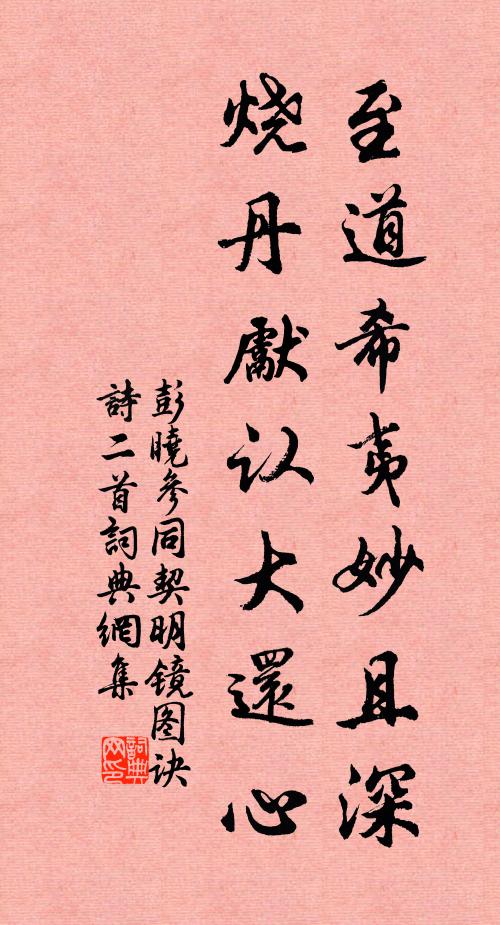 至道希夷妙且深
烧丹獻认大還心
彭曉參同契明镜图诀
詩二首詞典網集